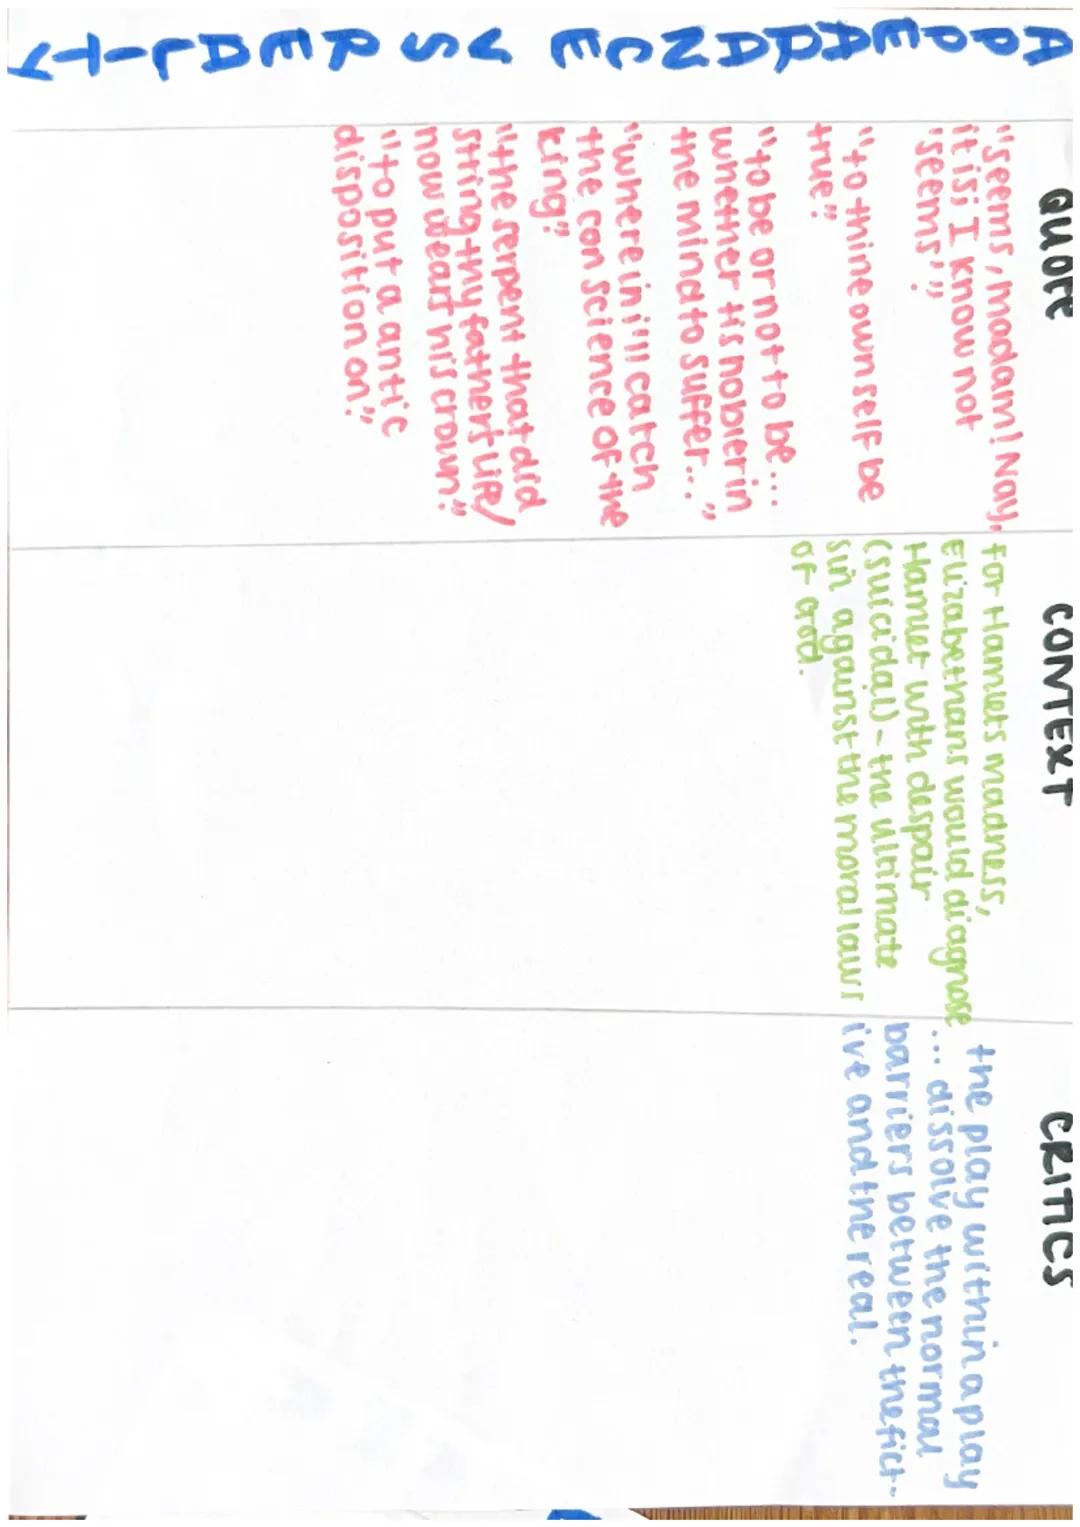 APPEARANCE VS REALITY
QUOTE
"seems, madam! Nay,
it is; I know not
'seems'"
"to thine own self be
true"
"to be or not to be...
whether tis nobler in
the mind to suffer..."
"where in i'll catch
the con science of the
king"
"the serpent that did
string thy father's life/
now wears his crown"
"to put a antic
disposition on"
CONTEXT
For Hamlets madness,
Elizabethans would diagnose
Hamlet with despair
(suicidal) - the ultimate
sin against the moral laws
of God.
CRITICS
the play within a play
... dissolve the normal
barriers between the fict-
ive and the real.